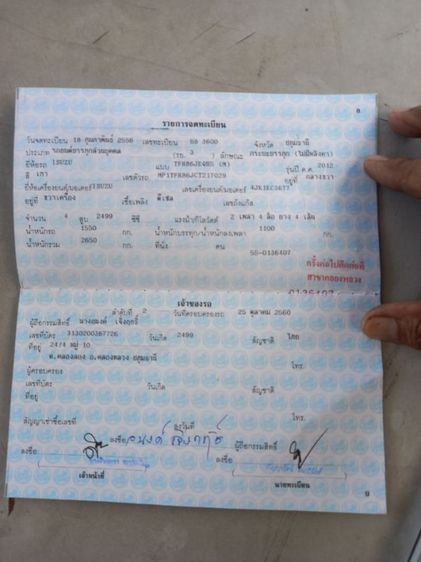 8
รายการจดทะเบียน
วันจดทะเบียน 18 กุมภาพันธ์ 2556 เลขทะเบียน 3600 จังหวัด ปทุมธานี
ประเภท รถยนต์บรรทุกส่วนบุคคล (รย. 3 ) ลักษณะ กระบะบรรทุก (ไม่มีหลังคา)
ยี่ห้อรถ ISUZU แบบ TFR86JE4R5 (M) รุ่นปี ค.ศ. 2012
สี เทา เลขตัวรถ MP1TFR86JCT217029 อยู่ที่ กลางขวา
ยี่ห้อเครื่องยนต์/มอเตอร์ ISUZU เลขเครื่องยนต์/มอเตอร์
อยู่ที่ ขวาเครื่อง เชื้อเพลิง ดีเซล เลขถังแก๊ส
จำนวน 4 สูบ 2499 ซีซี แรงม้า/กิโลวัตต์ 2 เพลา 4 ล้อ ยาง 4 เส้น
น้ำหนักรถ 1550 กก. น้ำหนักบรรทุก/น้ำหนักลงเพลา 1100 กก.
น้ำหนักรวม 2650 กก. ที่นั่ง คน
55-0136407
ครั้งต่อไปติดต่อที่
สาขาคลองหลวง
เจ้าของรถ
ลำดับที่ 2 วันที่ครอบครองรถ 25 ตุลาคม 2560
ผู้ถือกรรมสิทธิ์ นางอนงค์
เลขที่บัตร 3130200367726 วันเกิด 2499 สัญชาติ ไทย
ที่อยู่ 24/4 หมู่ 10
ต.คลองสอง อ.คลองหลวง ปทุมธานี โทร.
ผู้ครอบครอง
เลขที่บัตร วันเกิด สัญชาติ
ที่อยู่
โทร.
สัญญาเช่าซื้อเลขที่ ลงวันที่
ลงชื่อ อนงค์ ผู้ถือกรรมสิทธิ์
ลงชื่อ ลงชื่อ
เจ้าหน้าที่ นายทะเบียน
9